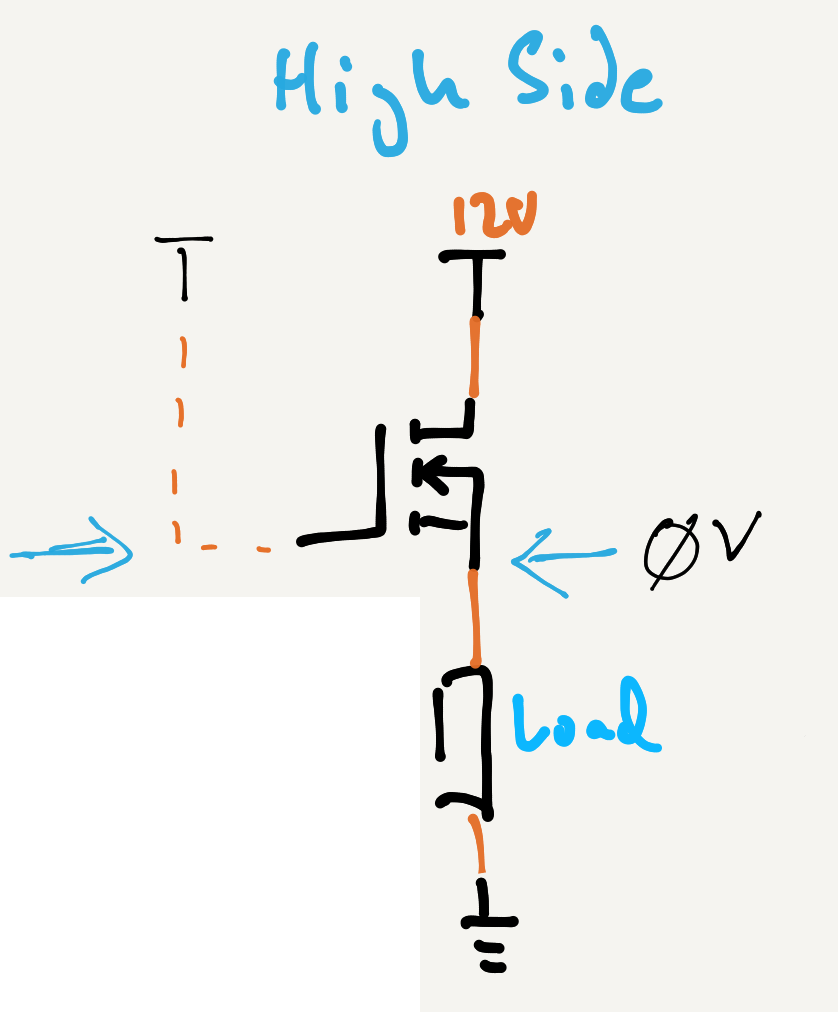 High Side
12V
ØV
Load